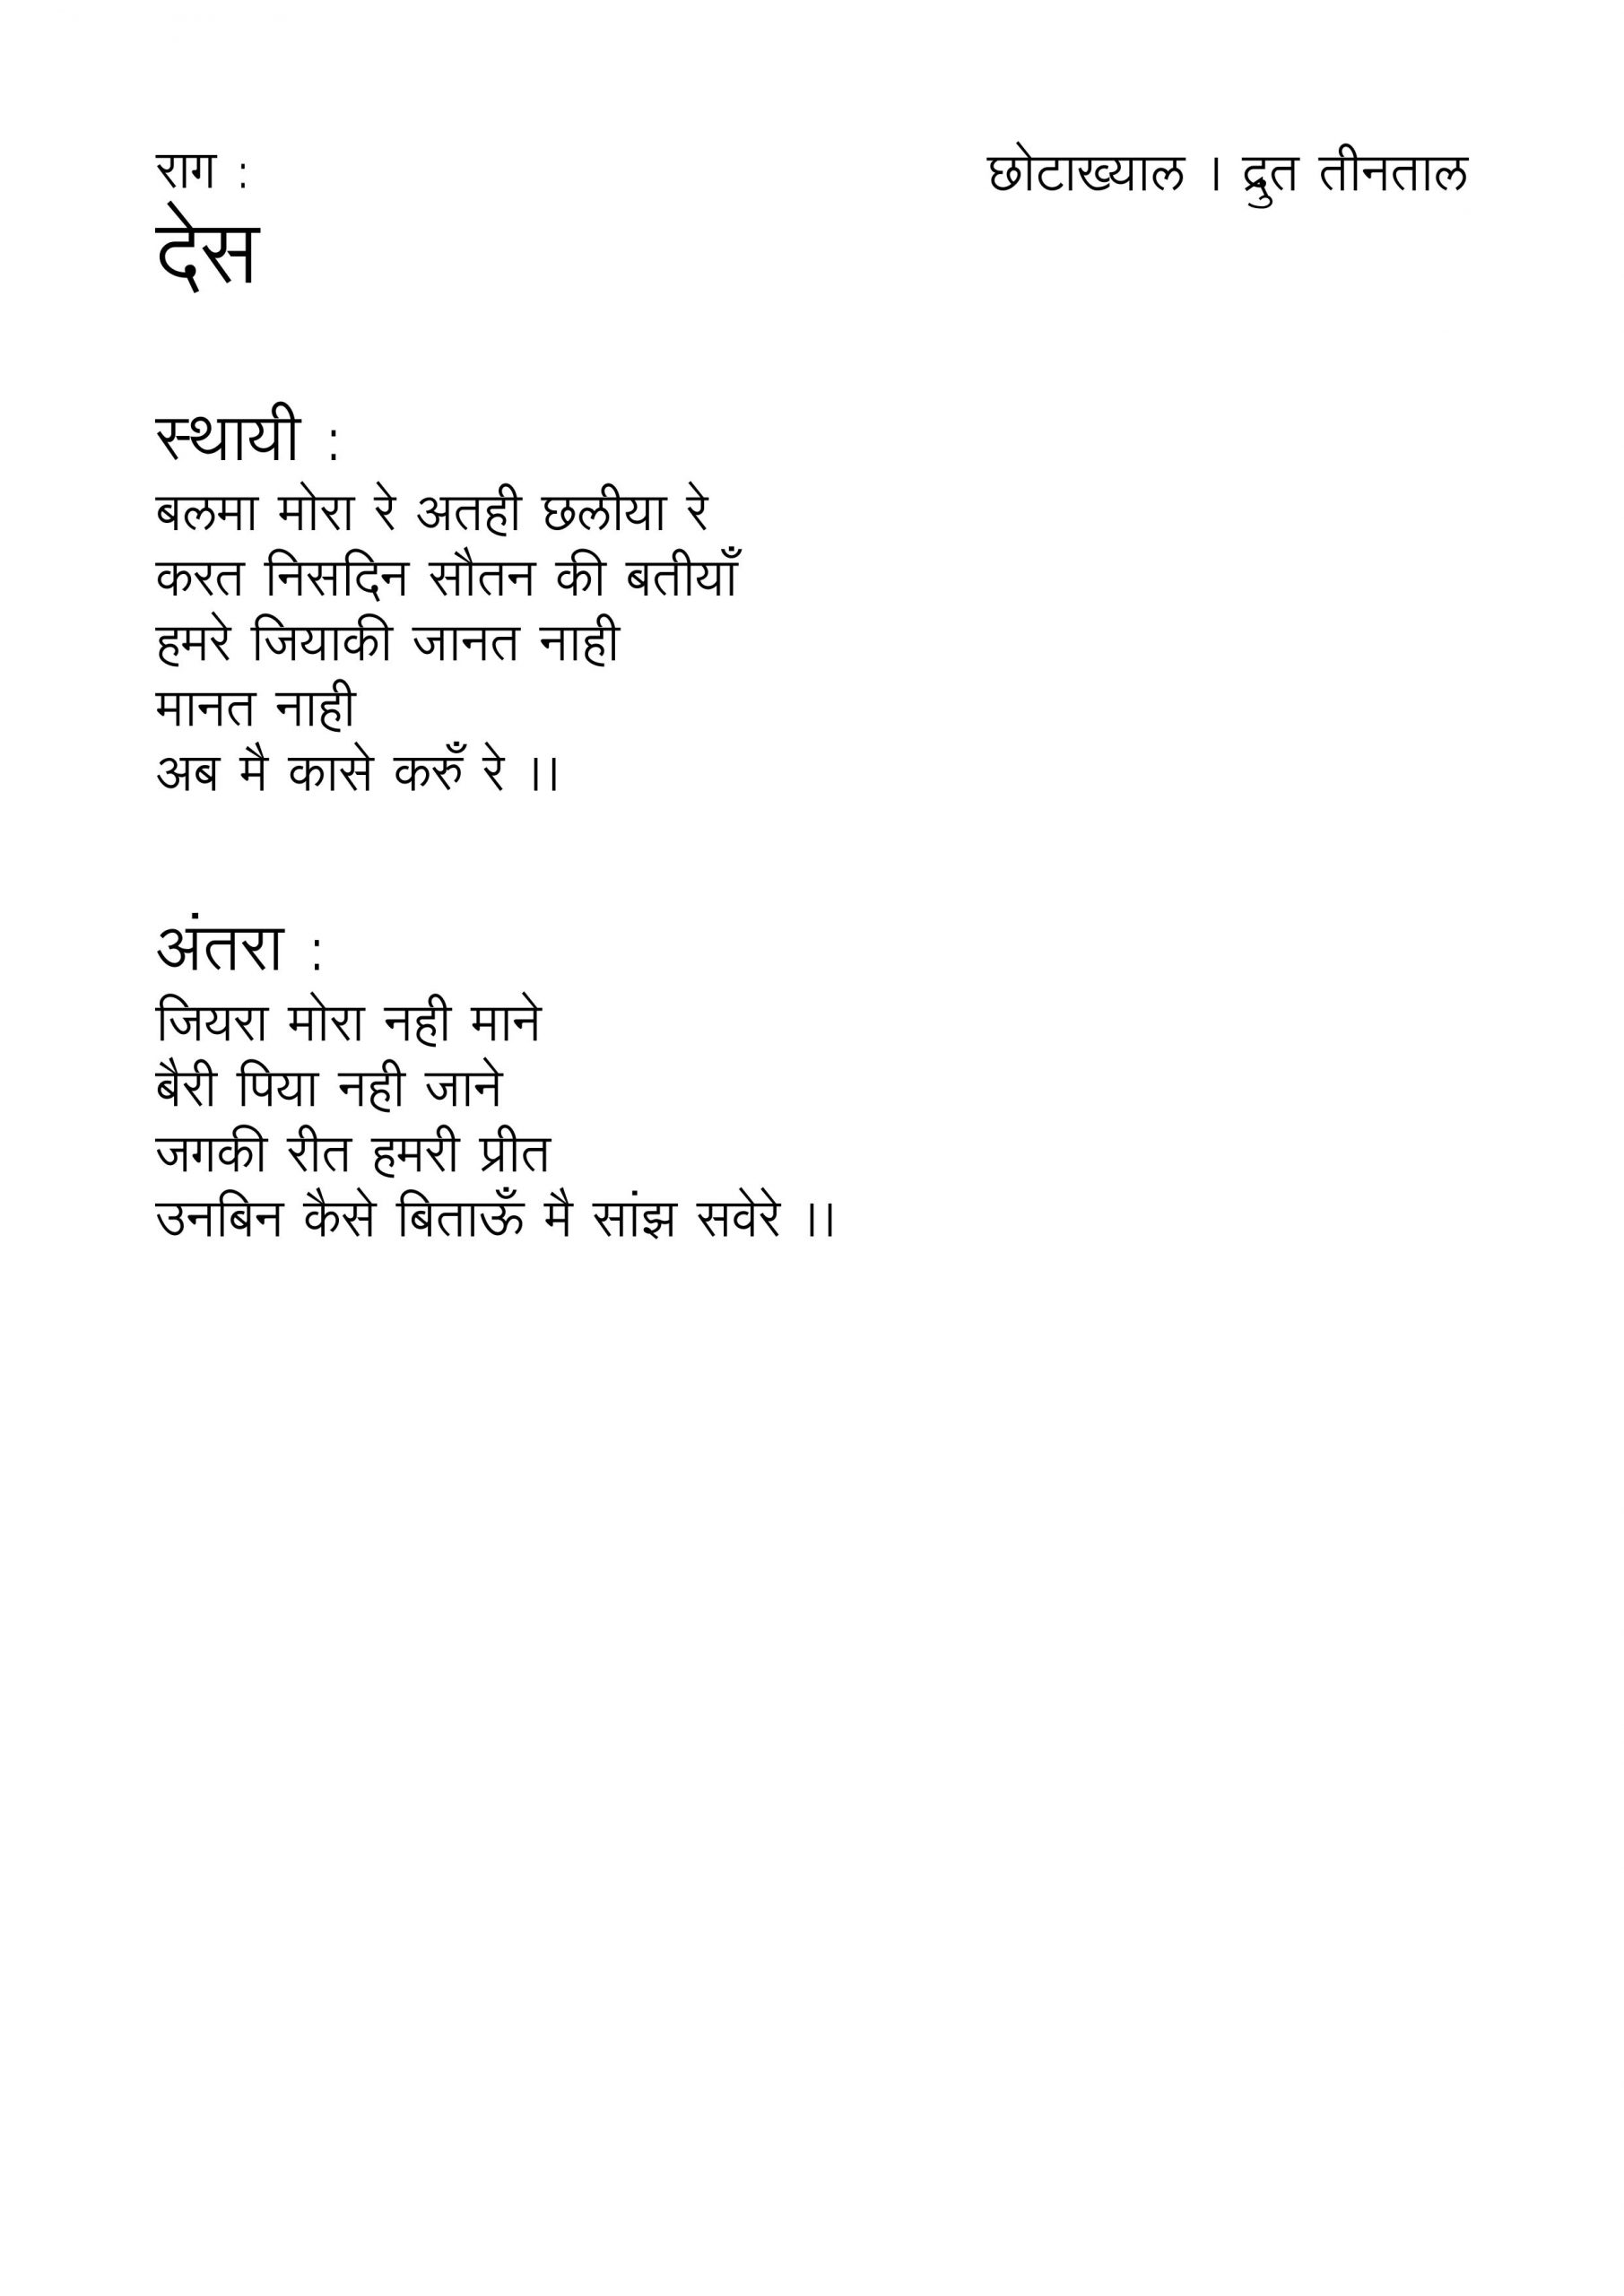 राग :
छोटाख्याल । द्रुत तीनताल
देस
स्थायी :
बलमा मोरा रे अतही छलीया रे
करत निसदिन सौतन की बतीयाँ
हमरे जियाकी जानत नाही
मानत नाही
अब मै कासे करुँ रे ।।
अंतरा :
जियरा मोरा नही माने
बैरी पिया नही जाने
जगकी रीत हमरी प्रीत
उनबिन कैसे बिताऊँ मै सांझ सवेरे ।।